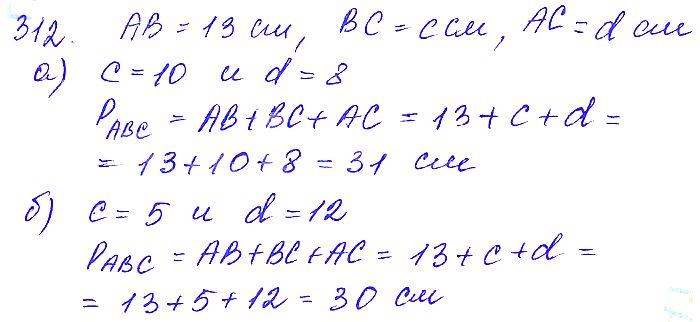 312. AB = 13 см, BC = c см, AC = d см
а) c = 10 и d = 8
P_ABC = AB + BC + AC = 13 + c + d =
= 13 + 10 + 8 = 31 см
б) c = 5 и d = 12
P_ABC = AB + BC + AC = 13 + c + d =
= 13 + 5 + 12 = 30 см